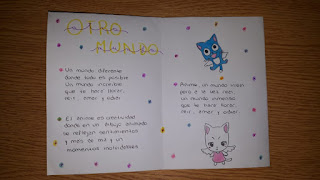 OTRO
MUNDO
Un mundo diferente
donde todo es posible
Un mundo increible
que te hará llorar,
reir, amar y odiar.
El anime es virtuidad
donde en un dibujo animado
se reflejan sentimientos
y más de mil y un
momentos inolvidables.
Anime, un mundo irreal
pero a la vez real
un mundo inmenso
que te hará llorar,
reir, amar y odiar.